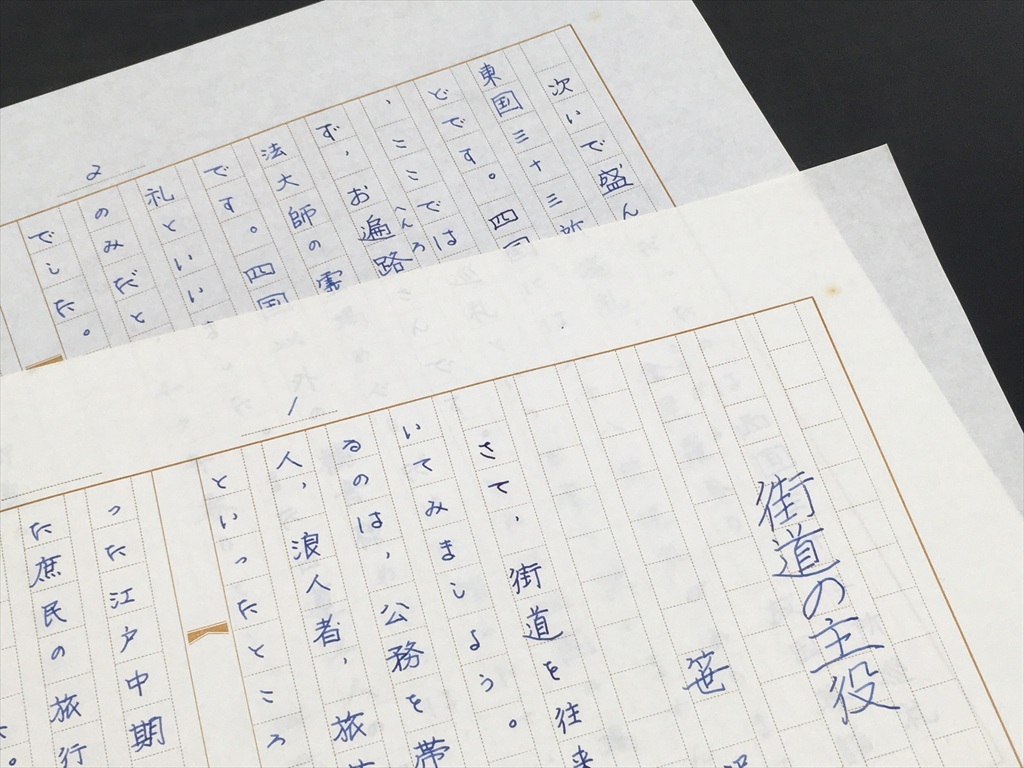 1
街道の主役
笹
さて、街道を往来
いてみましょう。
るのは、公務を帯
人、浪人者、旅
といったところ
った江戸中期
た庶民の旅行
。
2
次いで盛ん
東国三十三
どです。四国
、ここでは
へんろ
ず、お遍路
法大師の
です。四国
礼といい
のみだと
でした。